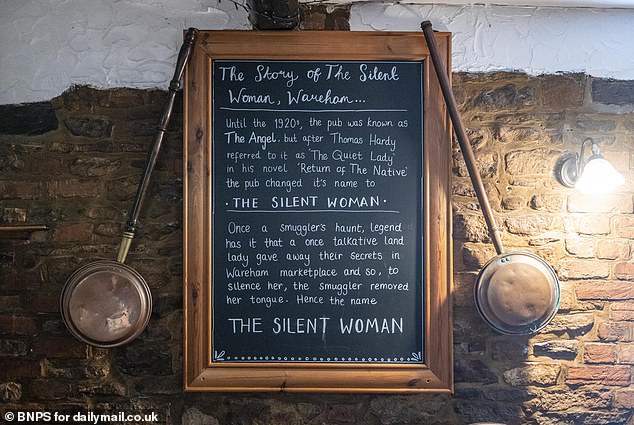 The Story of The Silent
Woman, Wareham...
Until the 1920s, the pub was known as
The Angel. but after Thomas Hardy
referred to it as 'The Quiet Lady'
in his novel 'Return of The Native'
the pub changed it's name to
• THE SILENT WOMAN •
Once a smuggler's haunt, legend
has it that a once talkative land
lady gave away their secrets in
Wareham marketplace and so, to
silence her, the smuggler removed
her tongue. Hence the name
THE SILENT WOMAN
© BNPS for dailymail.co.uk